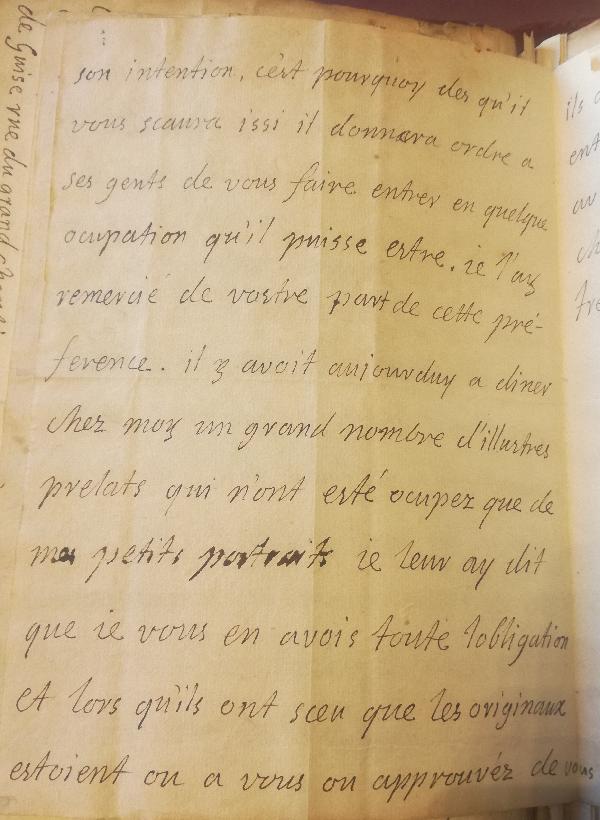 de Guise rue du grand
son intention, c'est pourquoy des qu'il
vous scaura issi il donnera ordre a
ses gents de vous faire entrer en quelque
ocupation qu'il puisse estre. ie l'ay
remercié de vostre part de cette pré-
ference. il y avoit aujourduy a diner
chez moy un grand nombre d'illustres
prelats qui n'ont esté ocupez que de
mes petits portraits ie leur ay dit
que ie vous en avois toute lobligation
et lors qu'ils ont sceu que les originaux
estoient ou a vous ou approuvéz de vous
ils
ent
av
ch
tre